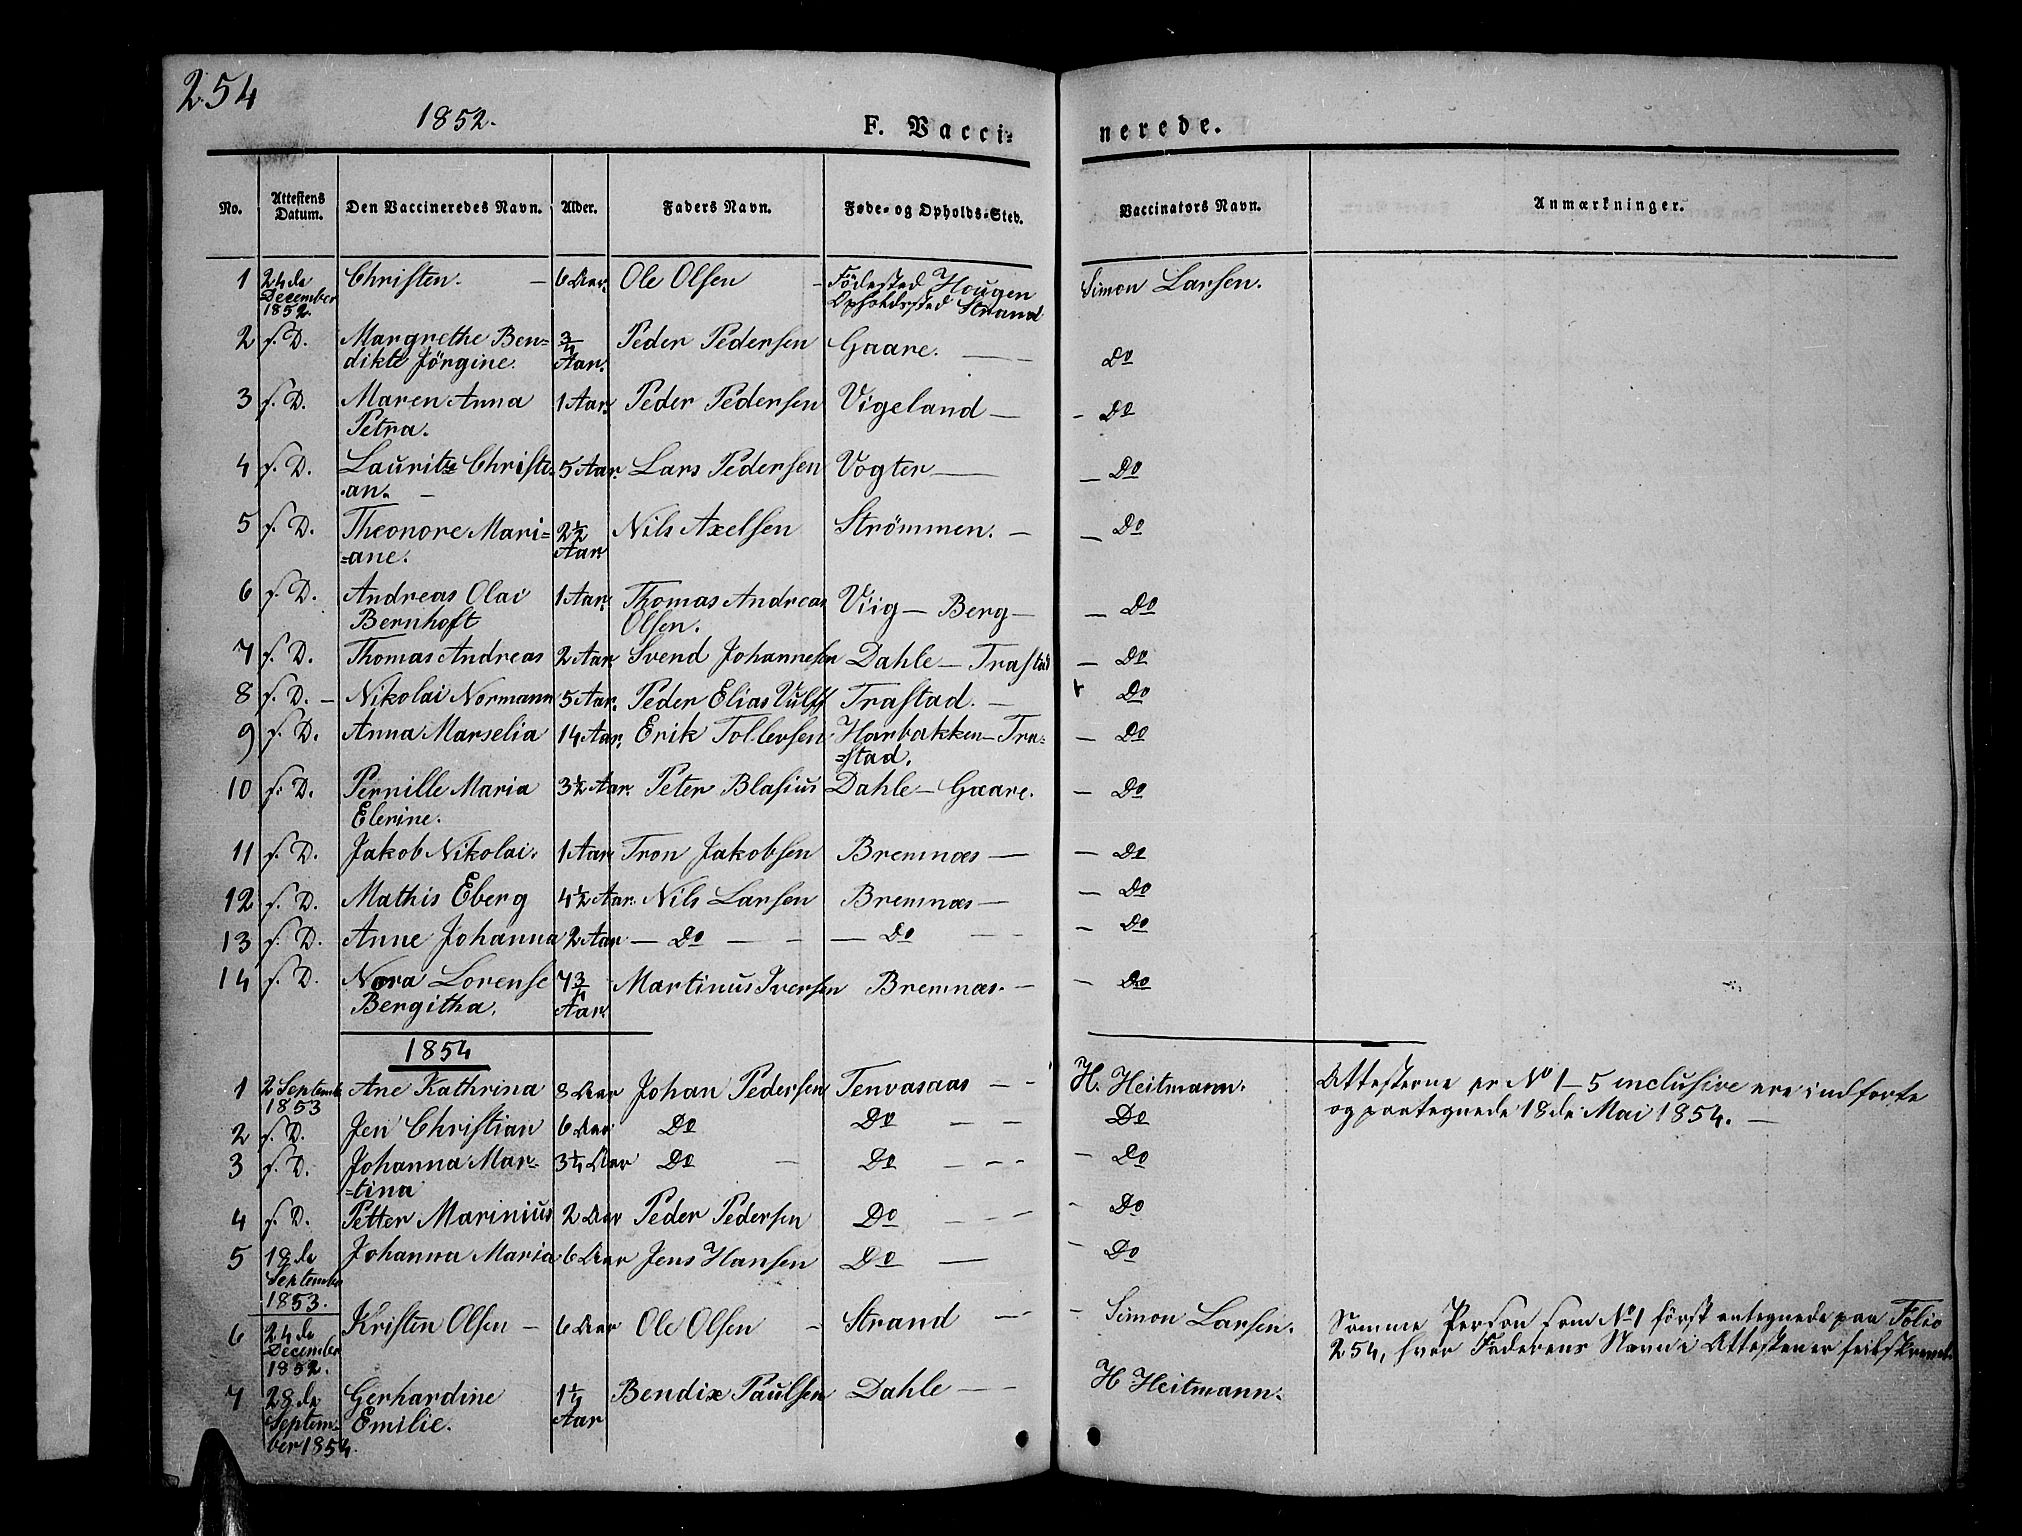 254
1852.
F. Vacci- nerede.
No. Attestens Datum. Den Vaccineredes Navn. Alder. Faders Navn. Føde- og Opholds-Sted. Vaccinators Navn. Anmærkninger.
1 24de December 1852. Christen. – 6 Aar. Ole Olsen – Födested Hougen Opholdssted Strand Simon Larsen.
2 s. D. Margrethe Ben= dikte Jörgine. 3/4 Aar. Peder Pedersen Gaare. — Do
3 s. D. Maren Anna Petra. 1 Aar. Peder Pedersen Vigeland — – Do
4 s. D. Lauritz Christi- an. – 5 Aar. Lars Pedersen Vogter — – Do
5 s. D. Theonore Mari= =ane. 2 1/2 Aar Nils Axelsen Strömmen. – – Do
6 s. D. Andreas Olai Bernhoft 1 Aar. Thomas Andreas Olsen. Viig – Berg – – Do
7 s. D. Thomas Andreas 2 Aar Svend Johannesen Dahle – Trastad – Do
8 s. D. – Nikolai Normann 5 Aar. Peder Elias Vulff Trastad. – Do
9 s. D. Anna Marselia 14 Aar. Erik Tollevsen Harbakken – Tra= =stad. – Do
10 s. D. Pernille Maria Elerine. 3 1/2 Aar. Peter Blasius Dahle – Gaare. – Do
11 s. D. Jakob Nikolai. 1 Aar Tron Jakobsen Bremnæs — – Do
12 s. D. Mathis Eberg 4 1/2 Aar. Nils Larsen Bremnæs – – Do
13 s. D. Anne Johanna 2 Aar – Do – – – Do – – – Do
14 s. D. Nora Lorense Bergitha. 7 3/4 Aar. Martinus Iversen Bremnæs. – – Do
1854
1 2 Septemb 1853 Ane Kathrina 8 Aar Johan Pedersen Tenvasaas – – H. Heitmann. Attesterne er No 1 – 5 inclusive ere indförte
og paategnede 18de Mai 1854. —
2 s. D. Jen Christian 6 Aar Do Do – – Do
3 s. D. Johanna Mar- =tina 3 1/4 Aar Do – Do – – – – Do
4 s. D. Petter Marinius 2 Aar Peder Pedersen Do – – – – Do
5 18de September 1853. Johanna Maria 6 Aar Jens Hansen Do — – Do
6 24de December 1852. Kristen Olsen – 6 Aar Ole Olsen – Strand – – Simon Larsen. Samme Person som No 1 förstantegnede paa Folio
254, hvor Faderens Navn i Attesten er feilskrevet.
7 28de Septem- ber 1854. Gerhardine Emilie. 1 1/4 Aar Bendix Paulsen Dahle – – H Heitmann.